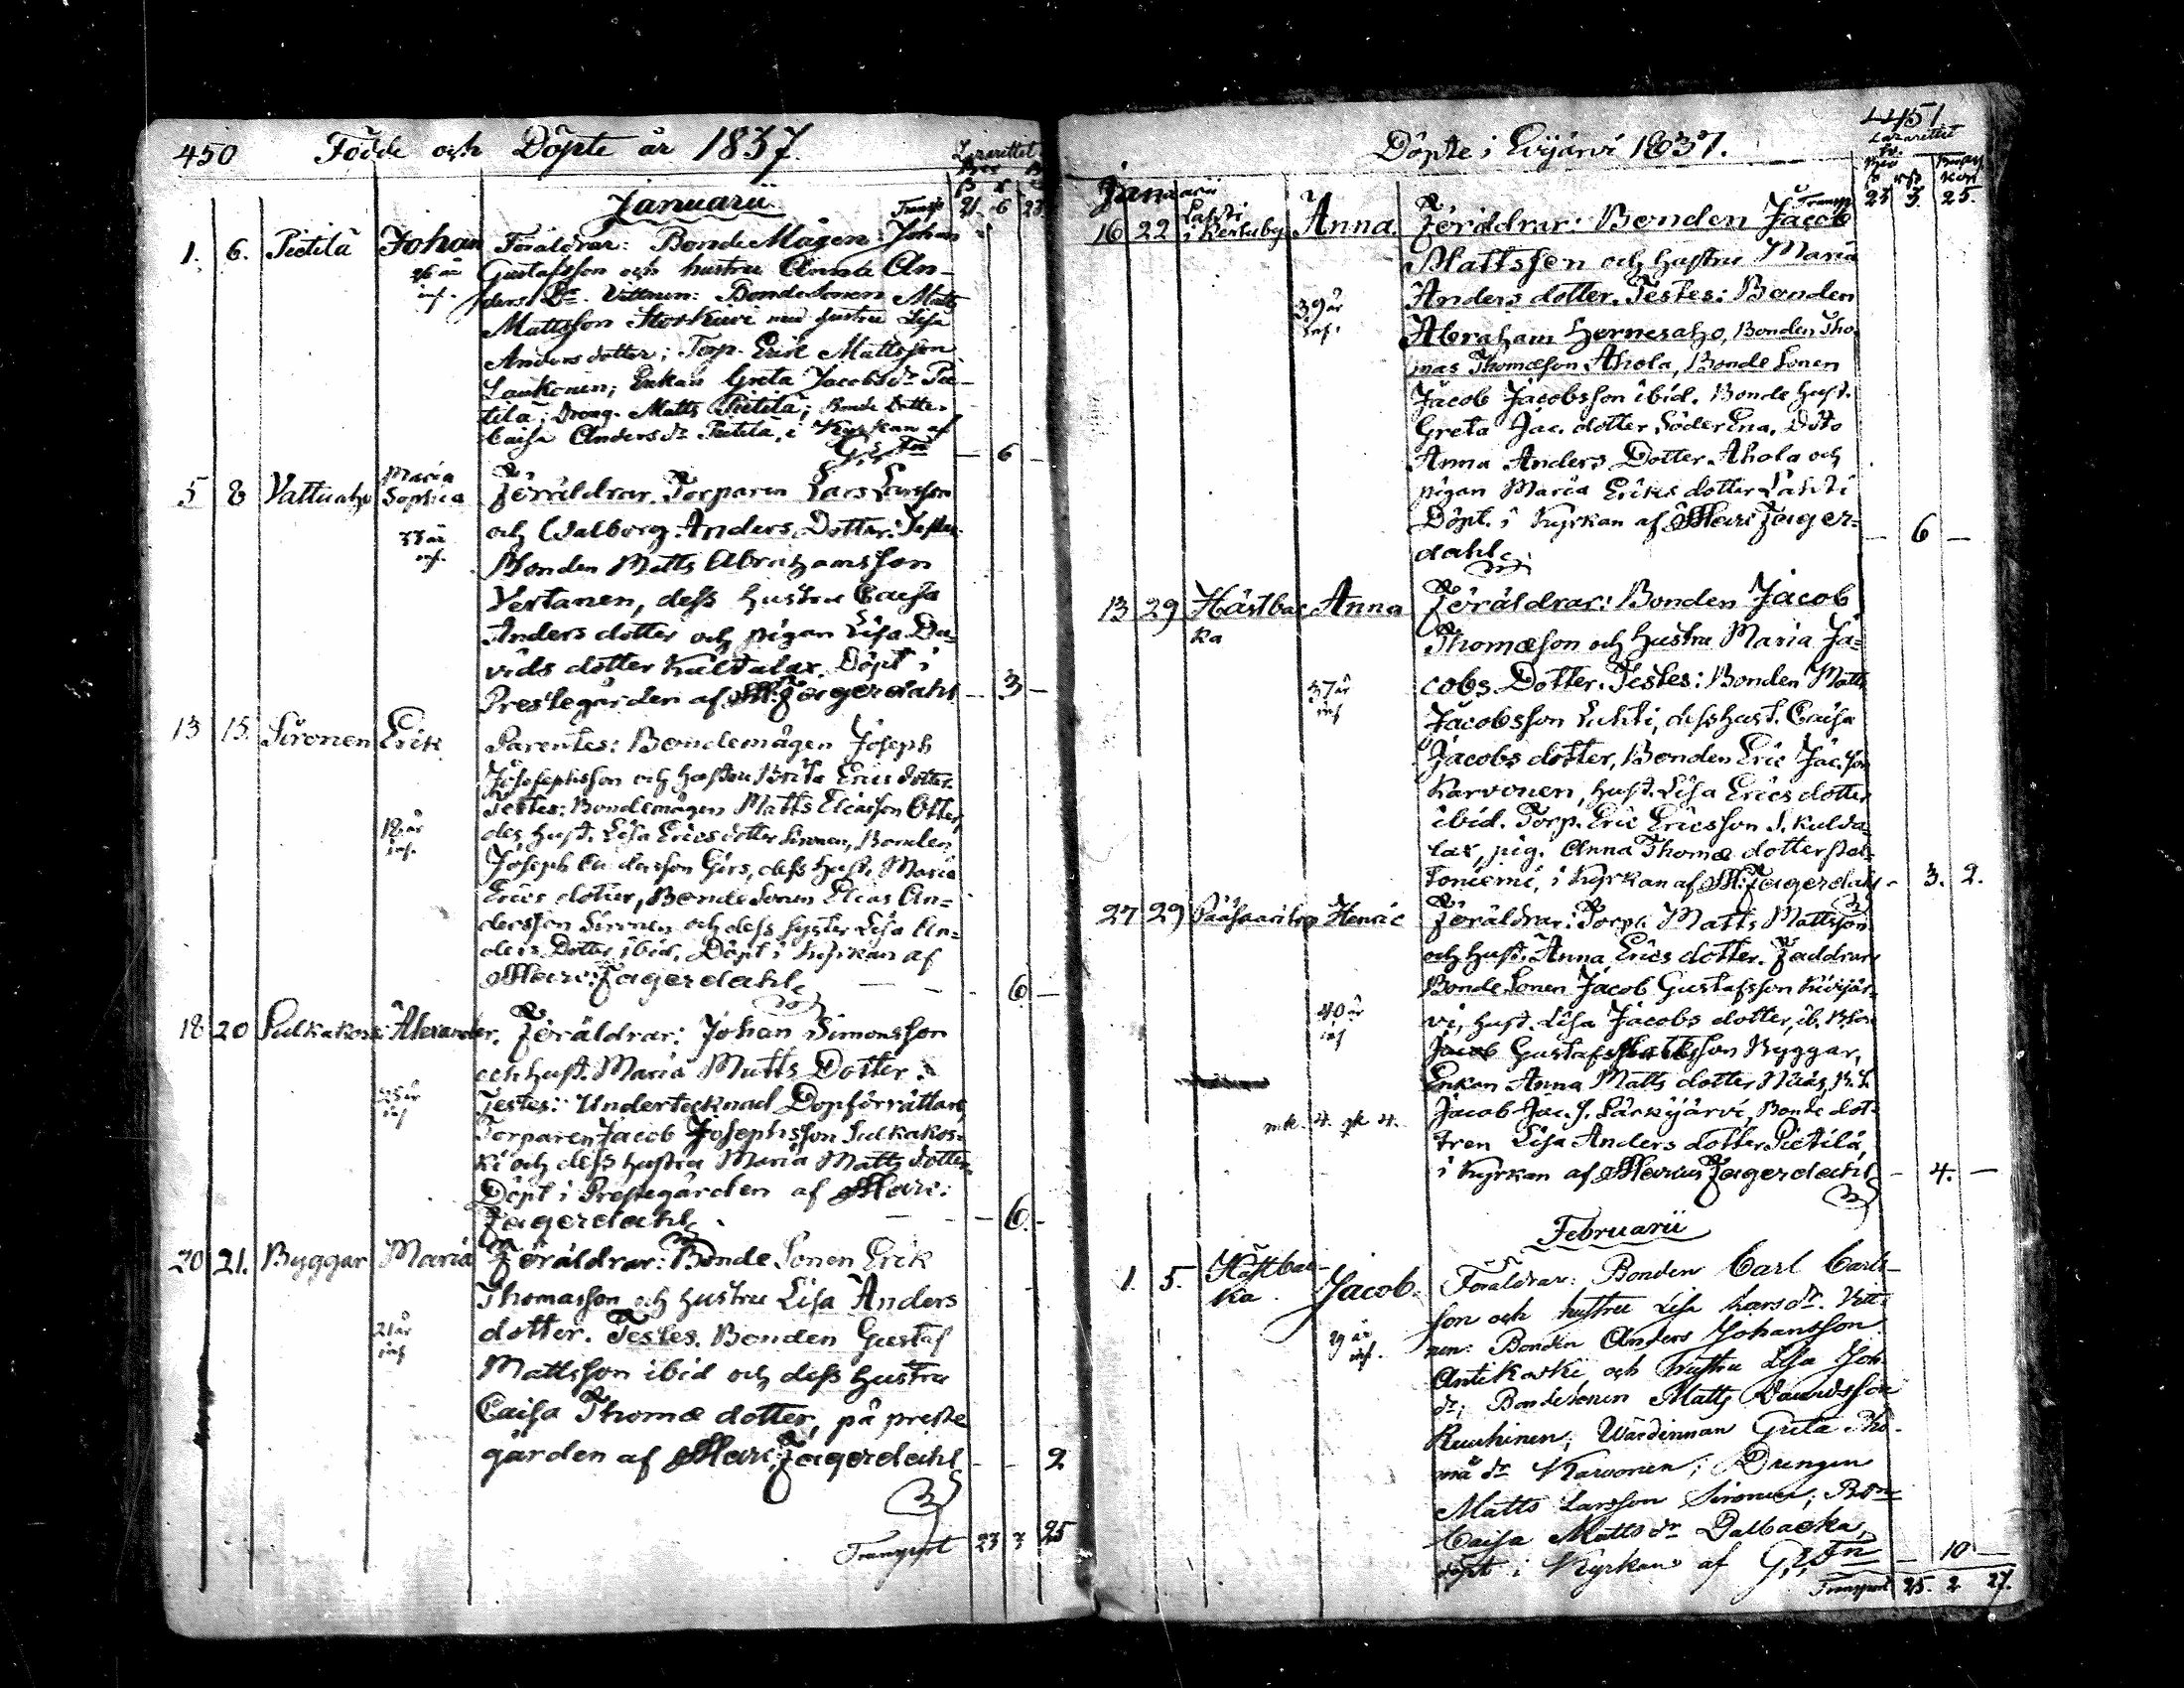 450 Födde och Döpte år 1837. Lazarettet
Januarii
Transp 21. 6 23
1. 6. Pietilä Johan Föräldrar: BondeMågen Johan
26 år Gustafsson och hustru Anna An-
inf. ders Dr. Vittnen: Bondesonen Matts
Mattsson Storkure med hustru Lisa
Andersdotter; Torp. Erik Mattsson
Laukonen; Enkan Greta Jacobsdr Pie-
tilä; Dräng. Matts Pietilä; Bonde Dotter
Caisa Andersdr Pietilä, i Kyrkan af
— 6 —
Maria
5 8 Vattuaho Sophia Föräldrar. Torparen Lars Larsson
33 år och Walborg Anders Dotter. Testes:
inf. Bonden Matts Abrahamsson
Vertanen, dess hustru Caisa
Anders dotter och pigan Lisa Da-
vids dotter Kultalax. Döpt i
Prestegården af M: Fagerdahl — 3 —
13 15. Sironen Erik Parentes: Bondemågen Joseph
Josephsson och hustru Brita Erics dotter.
Testes: Bondemågen Matts Eliasson Otter,
18 år des hust. Lisa Ericsdotter Sironen, Bonden
inf. Joseph Andersson Girs, dess hust. Maria
Erics dotter, BondeSonen Elias An-
dersson Sironen och dess syster Lisa An-
ders Dotter ibid. Döpt i Kyrkan af
Mari: Fagerdahl — — 6 —
18 20 Sulkakoski Alexander. Föräldrar: Johan Simonsson
och hust. Maria Matts Dotter.
25 år Testes: Undertecknad Dopförrättare,
inf Torparen Jacob Josephsson Sulkakos-
ki och dess hustru Maria Matts dotter
Döpt i Prestegården af Mari:
Fagerdahl. — — 6. —
20 21. Byggar Maria Föräldrar: Bonde Sonen Erik
Thomasson och hustru Lisa Anders
21 år dotter. Testes. Bonden Gustaf
inf Mattsson ibid och dess hustru
Caisa Thomæ dotter, på preste
gården af Mari: Fagerdahl — — 2
Transport 23 3 25
Döpte i Evijärvi 1837. 451
Lazarettet
Januarii Transp 23 3. 25.
Lahti
16 22 i Kertuby Anna Föräldrar: Bonden Jacob
Mattsson och hustru Maria
39 år Anders dotter. Testes: Bonden
inf. Abraham Hernesaho, Bonden Tho-
mas Thomæson Ahola, Bonde Sonen
Jacob Jacobsson ibid. Bonde hust.
Greta Jac. dotter SöderEna. Dito
Anna Anders Dotter Ahola och
pigan Maria Eriks dotter Lahti
Döpt. i Kyrkan af Mari Fager-
dahl. — 6 —
13 29 Hästbac Anna Föräldrar: Bonden Jacob
ka Thomæson och hustru Maria Ja-
37 år cobs Dotter. Testes: Bonden Matts
inf Jacobsson Lahti, dess hust. Caisa
Jacobs dotter, Bonden Eric Jac.son
Karvonen, hust. Lisa Erics dotter
ibid. Torp. Eric Ericsson S. Kulda-
lax, pig. Anna Thomæ dotter
toniemi, i Kyrkan af M: Fagerdahl — 3. 2.
27 29 Henric Föräldrar: Torp. Matts Mattsson
och hust. Anna Erics dotter. Faddrar
Bonde Sonen Jacob Gustafsson Kivijär-
40 år vi, hust. Lisa Jacobs dotter, ib. B.Son
inf Jacob Gustaf Mattsson Byggar,
Enkan Anna Matts dotter
Jacob Jac. S. Särkijärvi, Bonde dot-
tren Lisa Anders dotter Pietilä,
i Kyrkan af Marius Fagerdahl — 4. —
Februarii
1. 5. Hästbac- Jacob. Föräldrar: Bonden Carl Carls-
ka son och hustru Lisa Larsdr. Vitt-
29 år nen: Bonden Anders Johansson
inf. Antikoski och hustru Lisa Joh.
dr; Bondesonen Matts Davidsson
Ruuhinen; Wärdinnan Greta Tho-
mæ dr Karvonen; Drengen
Matts Larsson Sironen; Bdr
Caisa Mattsdr Dalbacka,
döpt i Kyrkan af — 10 —
Transport 25. 2 27.